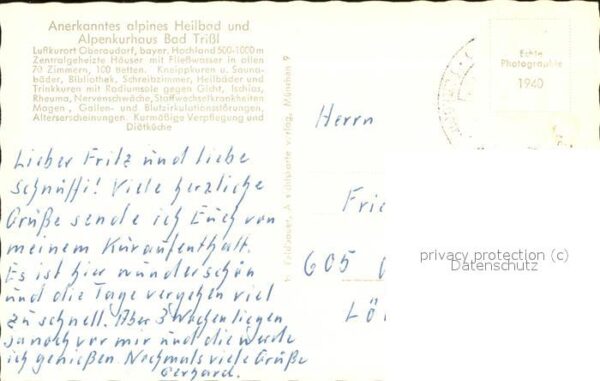 Anerkanntes alpines Heilbad und
Alpenkurhaus Bad Trißl
Luftkurort Oberaudorf, bayer. Hochland 500-1000 m
Zentralgeheizte Häuser mit Fließwasser in allen
70 Zimmern, 100 Betten. Kneippkuren u. Sauna-
bäder, Bibliothek, Schreibzimmer, Heilbäder und
Trinkkuren mit Radiumsole gegen Gicht, Ischias,
Rheuma, Nervenschwäche, Stoffwechselkrankheiten
Magen-, Gallen- und Blutzirkulationsstörungen,
Alterserscheinungen. Kurmäßige Verpflegung und
Diätküche
Lieber Fritz und liebe
Schnuffi! Viele herzliche
Grüße sende ich Euch von
meinem Kuraufenthalt.
Es ist hier wunderschön
und die Tage vergehen viel
zu schnell. Aber 3 Wochen liegen
ja noch vor mir und die werde
ich genießen Nochmals viele Grüße
Gerhard.
Feldbauer, Ansichtskartenverlag, München 9
Echte
Photographie
1940
Herrn
Frie
605
Lö
privacy protection (c)
Datenschutz